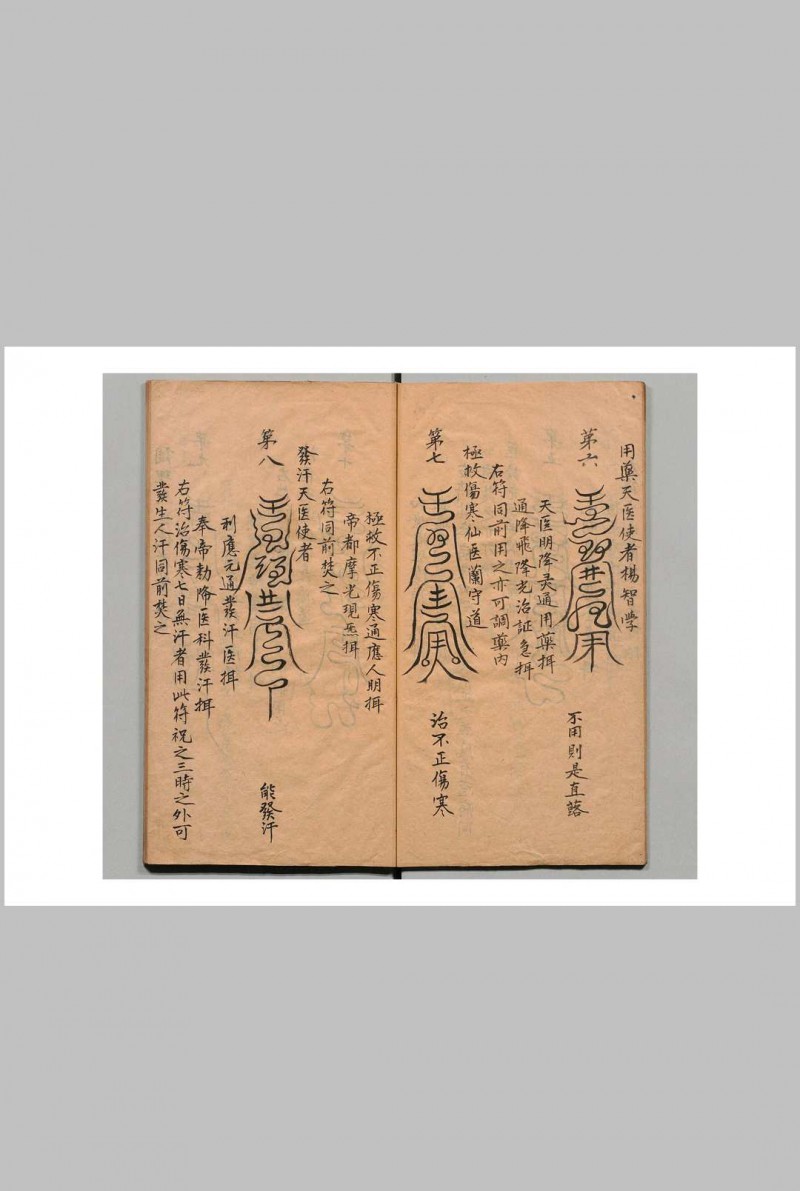 用藥天医使者楊智學
第六
不用則是直路
天医明降灵通用藥揖
通降飛降允治証急揖
右符同前用之亦可調藥内
極救傷寒仙医蘭守道
第七
治不正傷寒
極救不正傷寒通應人明揖
帝都摩允現無揖
右符同前焚之
發汗天医使者
第八
能發汗
利應元通發汗医揖
奉帝勅降医科發汗揖
右符治傷寒七日無汗者用此符祝之三時之外可
發生人汗同前焚之